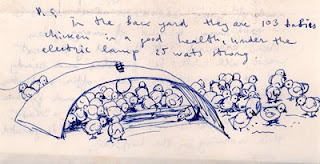 P.S.
In the back yard they are 103 babies
chicken in a good health, under the
electric lamp 25 wats strong